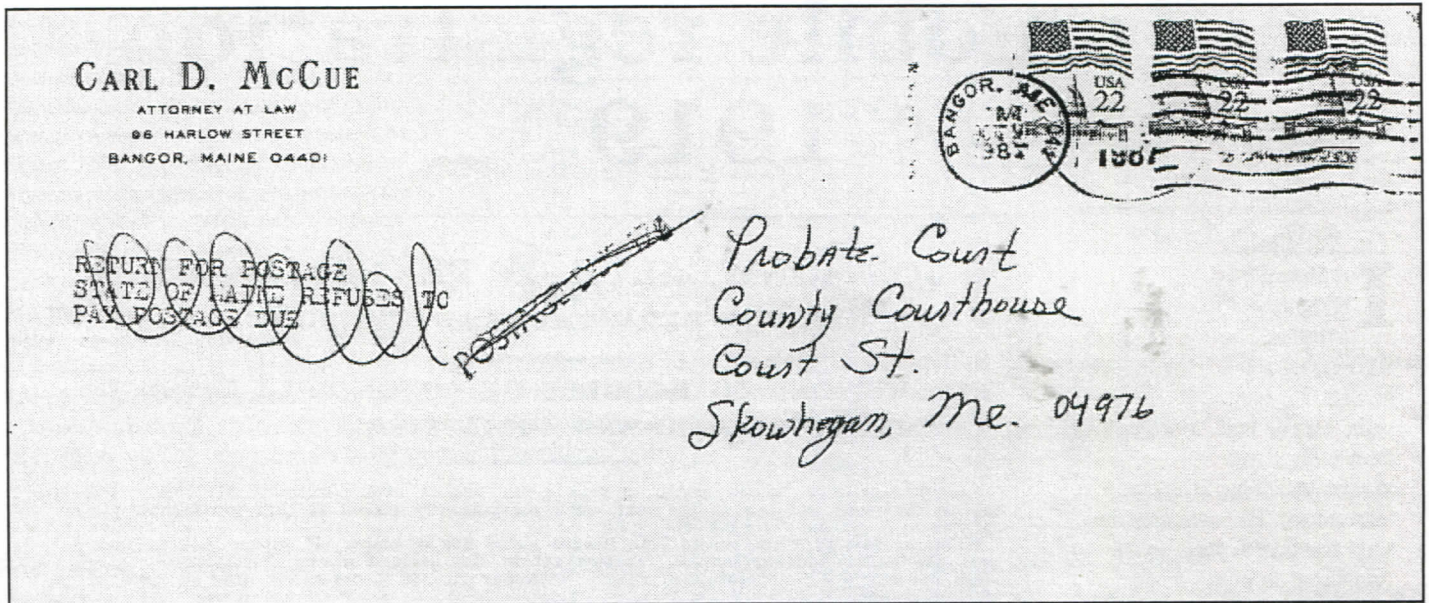 CARL D. MCCUE
ATTORNEY AT LAW
96 HARLOW STREET
BANGOR, MAINE 04401
USA 22
USA 22
USA 22
BANGOR, ME
1987
RETURN FOR POSTAGE
STATE OF MAINE REFUSES TO
PAY POSTAGE DUE
Probate Court
County Courthouse
Court St.
Skowhegan, Me. 04976